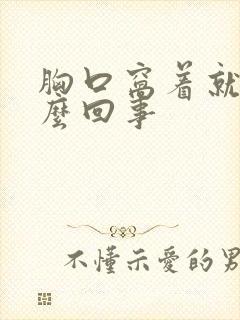 胸口窩着就
麼回事
不懂示愛的男